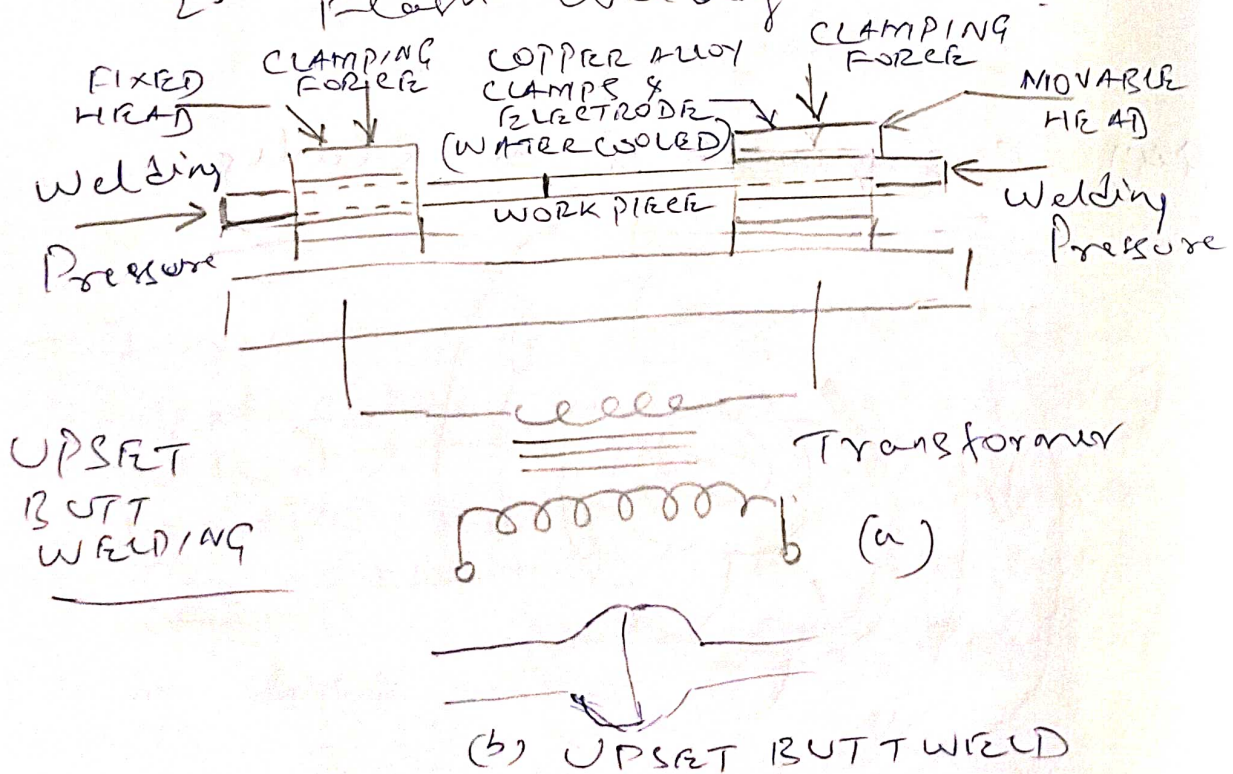 Flash Welding
CLAMPING
FORCE
FIXED
HEAD
COPPER ALLOY
CLAMPS &
ELECTRODE
(WATER COOLED)
CLAMPING
FORCE
MOVABLE
HEAD
Welding
Pressure
WORK PIECE
Welding
Pressure
UPSET
BUTT
WELDING
Transformer
(a)
(b) UPSET BUTT WELD